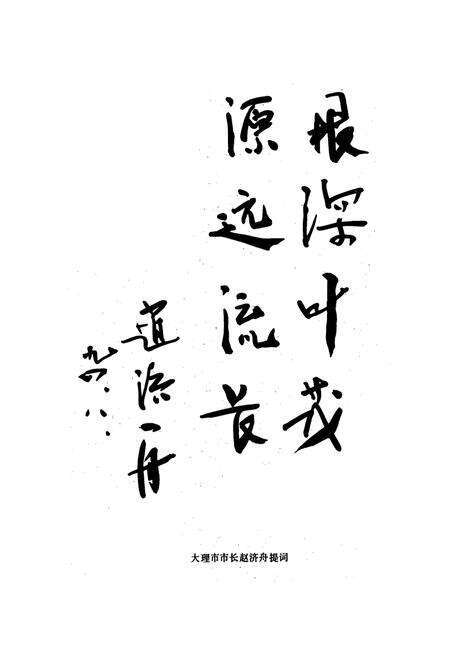 根深叶茂
源远流长
赵济舟
九四.八.
大理市市长赵济舟提词